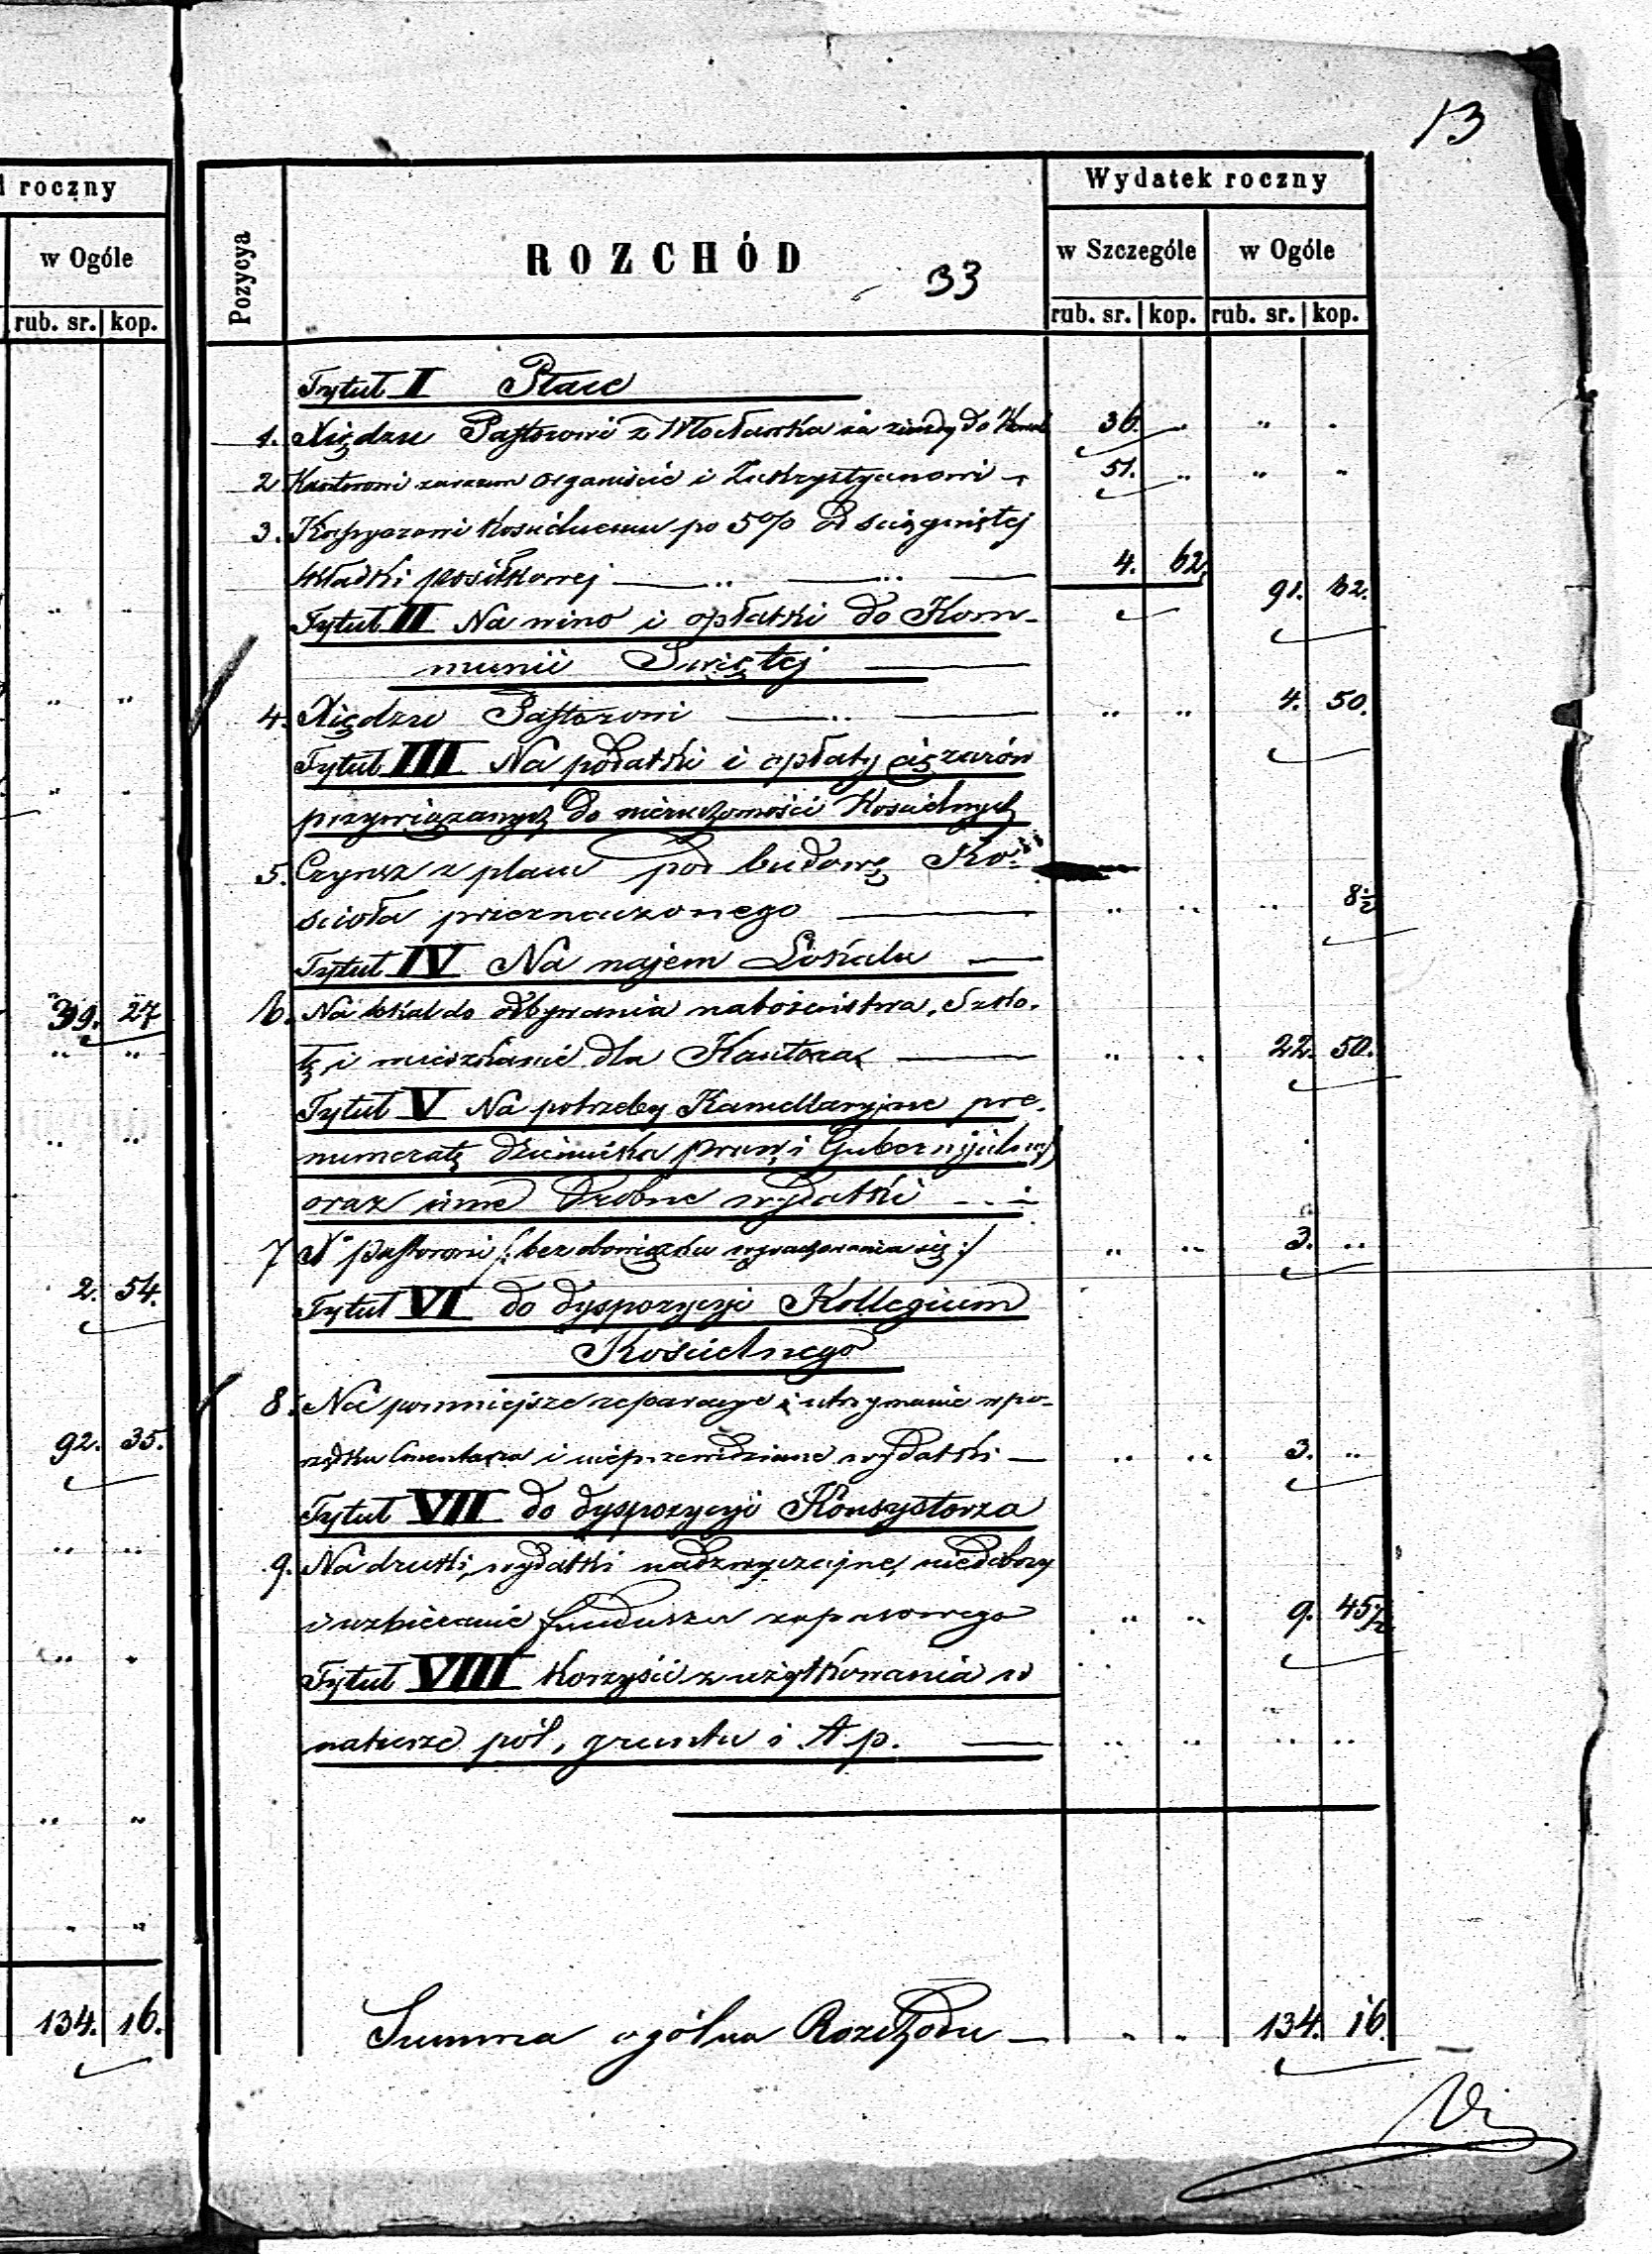 13
d roczny
w Ogóle
rub. sr. kop.
" "
" "
" "
39. 27
" "
" "
2. 54.
92. 35.
" "
" "
" "
" "
134. 16.
Pozycya
ROZCHÓD
33
Wydatek roczny
w Szczególe w Ogóle
rub. sr. kop. rub. sr. kop.
Tytuł I Płace
1. Xiędzu Pastorowi z Włocławka za zjazdy do 36. " " "
2 Kantorowi zarazem organiście i Zakrystyanowi 51. " " "
3. Kassyerowi Kościelnemu po 5% od ściągniętej
składki posiłkowej 4. 62. 91. 62.
Tytuł II Na wino i opłatki do Kom-
munii Świętej
4. Xiędzu Pastorowi " " 4. 50.
Tytuł III Na podatki i opłaty ciężarów
przywiązanych do nieruchomości Kościelnych
5. Czynsz z placu pod budowę Ko-
ścioła przeznaczonego " " " 8½
Tytuł IV Na najem Lokalu
6. Na lokal do odbywania nabożeństwa, Szko-
łę i mieszkanie dla Kantora " " 22. 50.
Tytuł V Na potrzeby Kancellaryjne pre-
numeratę dziennika praw i Gubernijalnej
oraz inne drobne wydatki
7 X Pastorowi /: bez obowiązku wyrachowania się :/ " " 3. "
Tytuł VI do dyspozycyi Kollegium
Kościelnego
8. Na pomniejsze reparacye i utrzymanie w po-
rządku Cmentarza i nieprzewidziane wydatki " " 3. "
Tytuł VII do dyspozycyi Konsystorza
9. Na druki, wydatki nadzwyczajne, niedobory
i uzbieranie funduszu zapasowego " " 9. 45½
Tytuł VIII Korzyści z użytkowania w
naturze pól, gruntu i t. p. " " " "
Summa ogólna Rozchodu " " 134. 16.